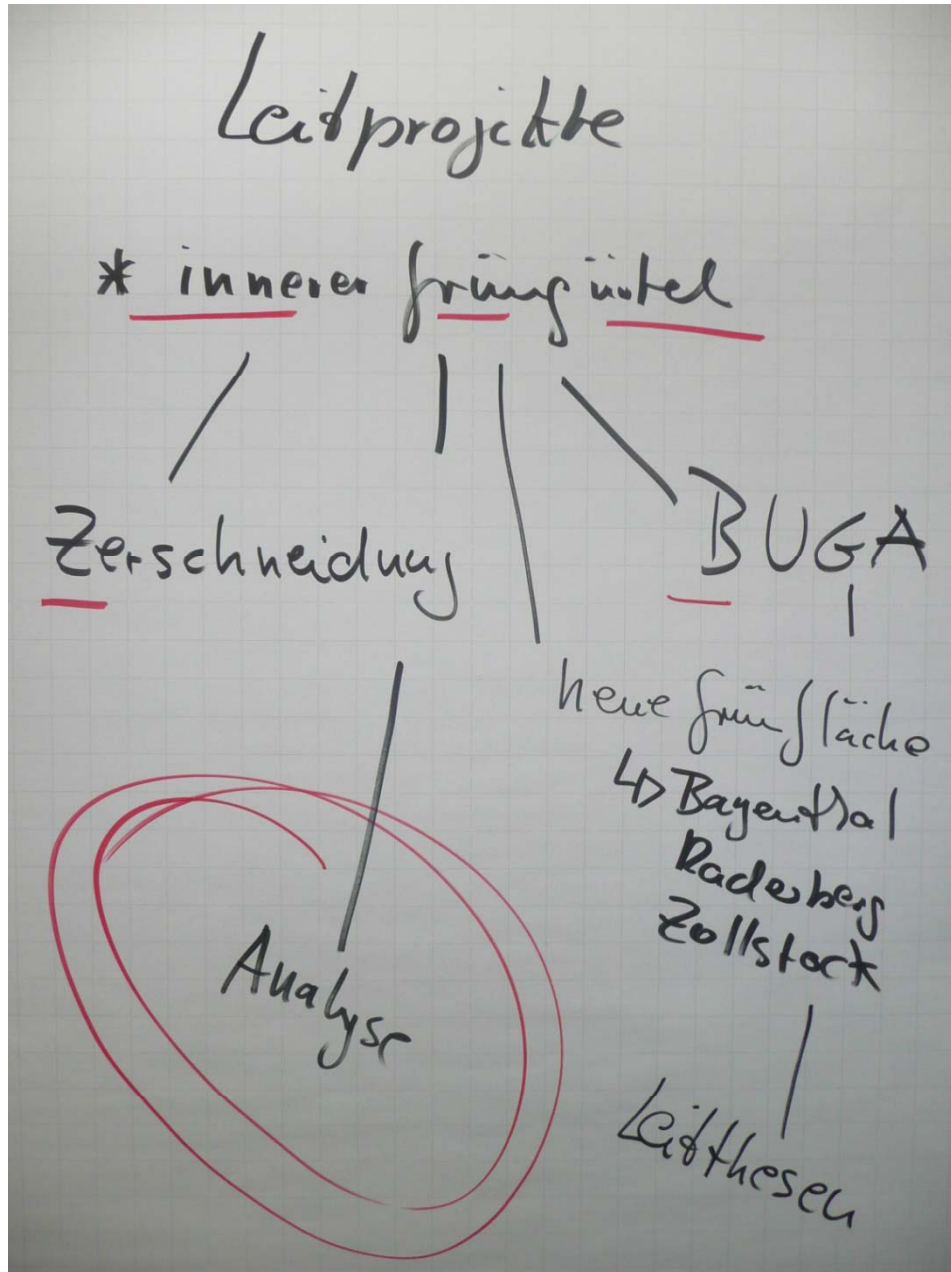 Leitprojekte
* innerer Grüngürtel
Zerschneidung
BUGA
neue Grünfläche
↳ Bayenthal
Raderberg
Zollstock
Analyse
Leitthesen